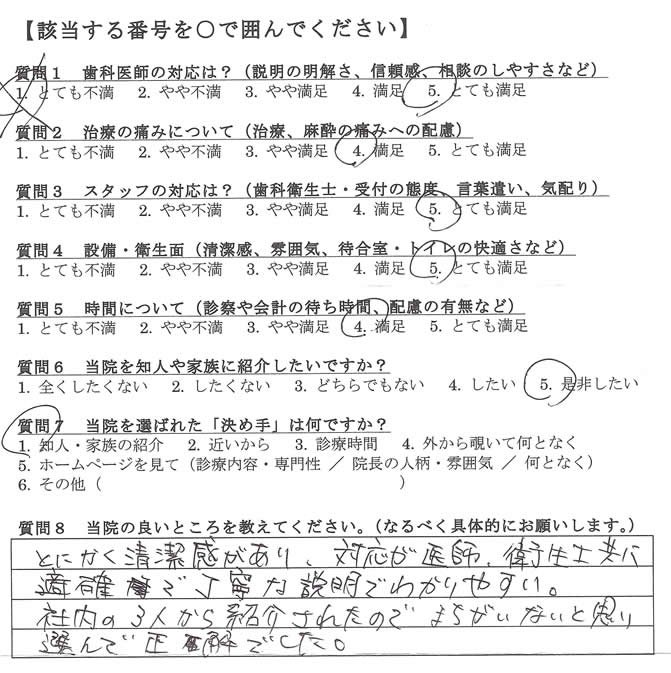 【該当する番号を○で囲んでください】
質問1　歯科医師の対応は？（説明の明解さ、信頼感、相談のしやすさなど）
1. とても不満　2. やや不満　3. やや満足　4. 満足　5. とても満足
質問2　治療の痛みについて（治療、麻酔の痛みへの配慮）
1. とても不満　2. やや不満　3. やや満足　4. 満足　5. とても満足
質問3　スタッフの対応は？（歯科衛生士・受付の態度、言葉遣い、気配り）
1. とても不満　2. やや不満　3. やや満足　4. 満足　5. とても満足
質問4　設備・衛生面（清潔感、雰囲気、待合室・トイレの快適さなど）
1. とても不満　2. やや不満　3. やや満足　4. 満足　5. とても満足
質問5　時間について（診察や会計の待ち時間、配慮の有無など）
1. とても不満　2. やや不満　3. やや満足　4. 満足　5. とても満足
質問6　当院を知人や家族に紹介したいですか？
1. 全くしたくない　2. したくない　3. どちらでもない　4. したい　5. 是非したい
質問7　当院を選ばれた「決め手」は何ですか？
1. 知人・家族の紹介　2. 近いから　3. 診療時間　4. 外から覗いて何となく
5. ホームページを見て（診療内容・専門性 ／ 院長の人柄・雰囲気 ／ 何となく）
6. その他（　　　　　　　　　　　　　　　　　　）
質問8　当院の良いところを教えてください。（なるべく具体的にお願いします。）
とにかく清潔感があり、対応が医師、衛生士共に
適確で丁寧な説明でわかりやすい。
社内の3人から紹介されたのでまちがいないと思い
選んで正解でした。